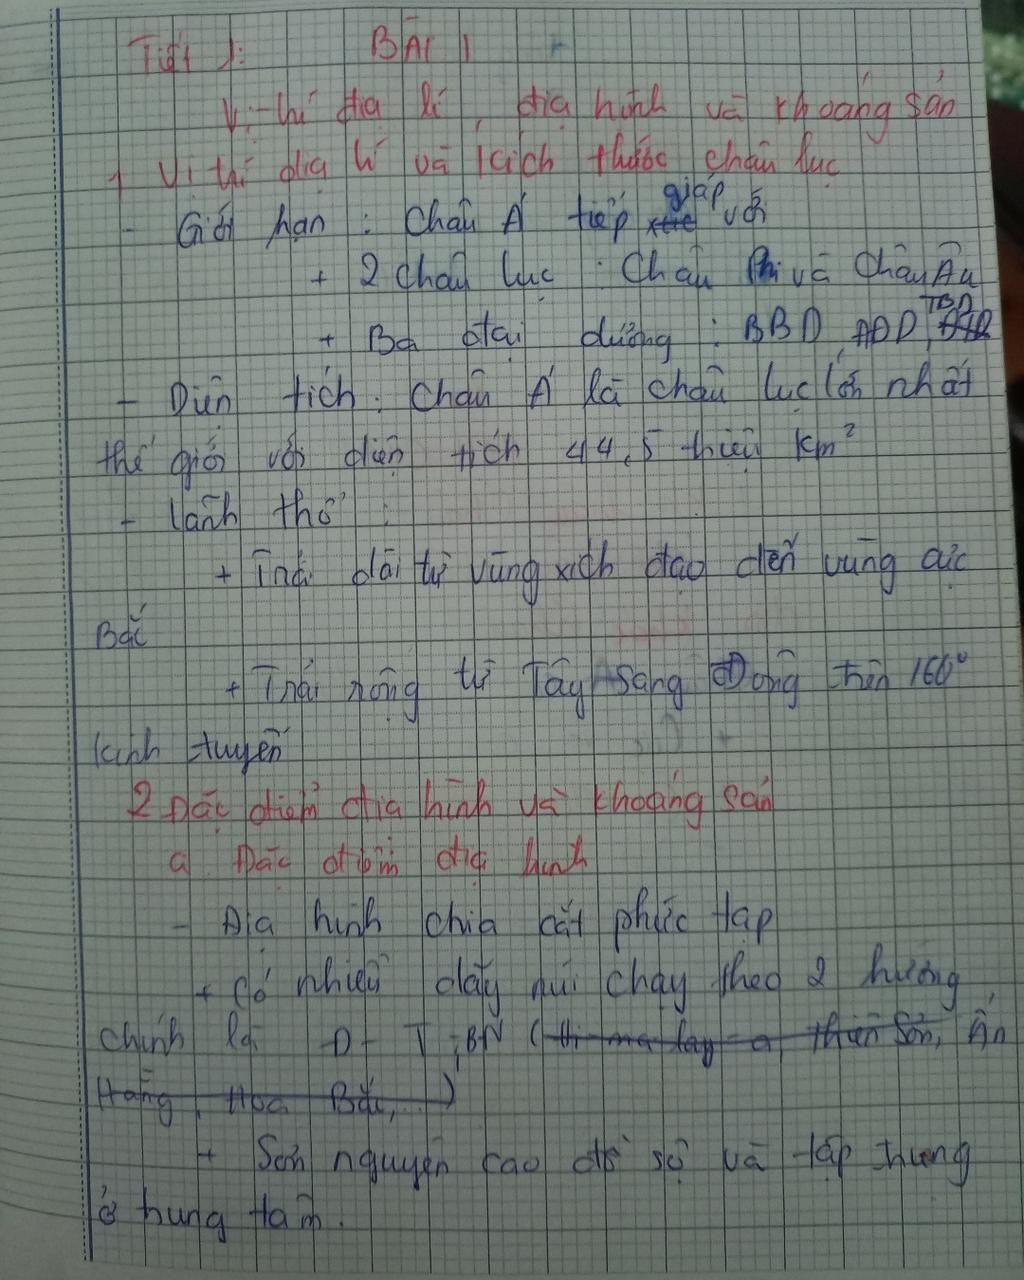 Tiết 1: BÀI 1
Vị trí địa lí, địa hình và khoáng sản
1 Vị trí địa lí và kích thước châu lục
- Giới hạn : Châu Á tiếp giáp với
+ 2 Châu lục : Châu Phi và Châu Âu
+ Ba đại dương : BBD, ADD, TBD
- Diện tích : Châu Á là châu lục lớn nhất
thế giới với diện tích 44,5 triệu km²
- Lãnh thổ :
+ Trải dài từ vùng xích đạo đến vùng cực
Bắc
+ Trải rộng từ Tây sang Đông trên 160°
kinh tuyến
2 Đặc điểm địa hình và khoáng sản
a Đặc điểm địa hình
- Địa hình chia cắt phức tạp
+ Có nhiều dãy núi chạy theo 2 hướng
chính là Đ - T ; BN (Hi-ma-lay-a, Thiên Sơn, Ấn
Hằng, Hoa Bắc,...)
+ Sơn nguyên cao đồ sộ và tập trung
ở trung tâm.